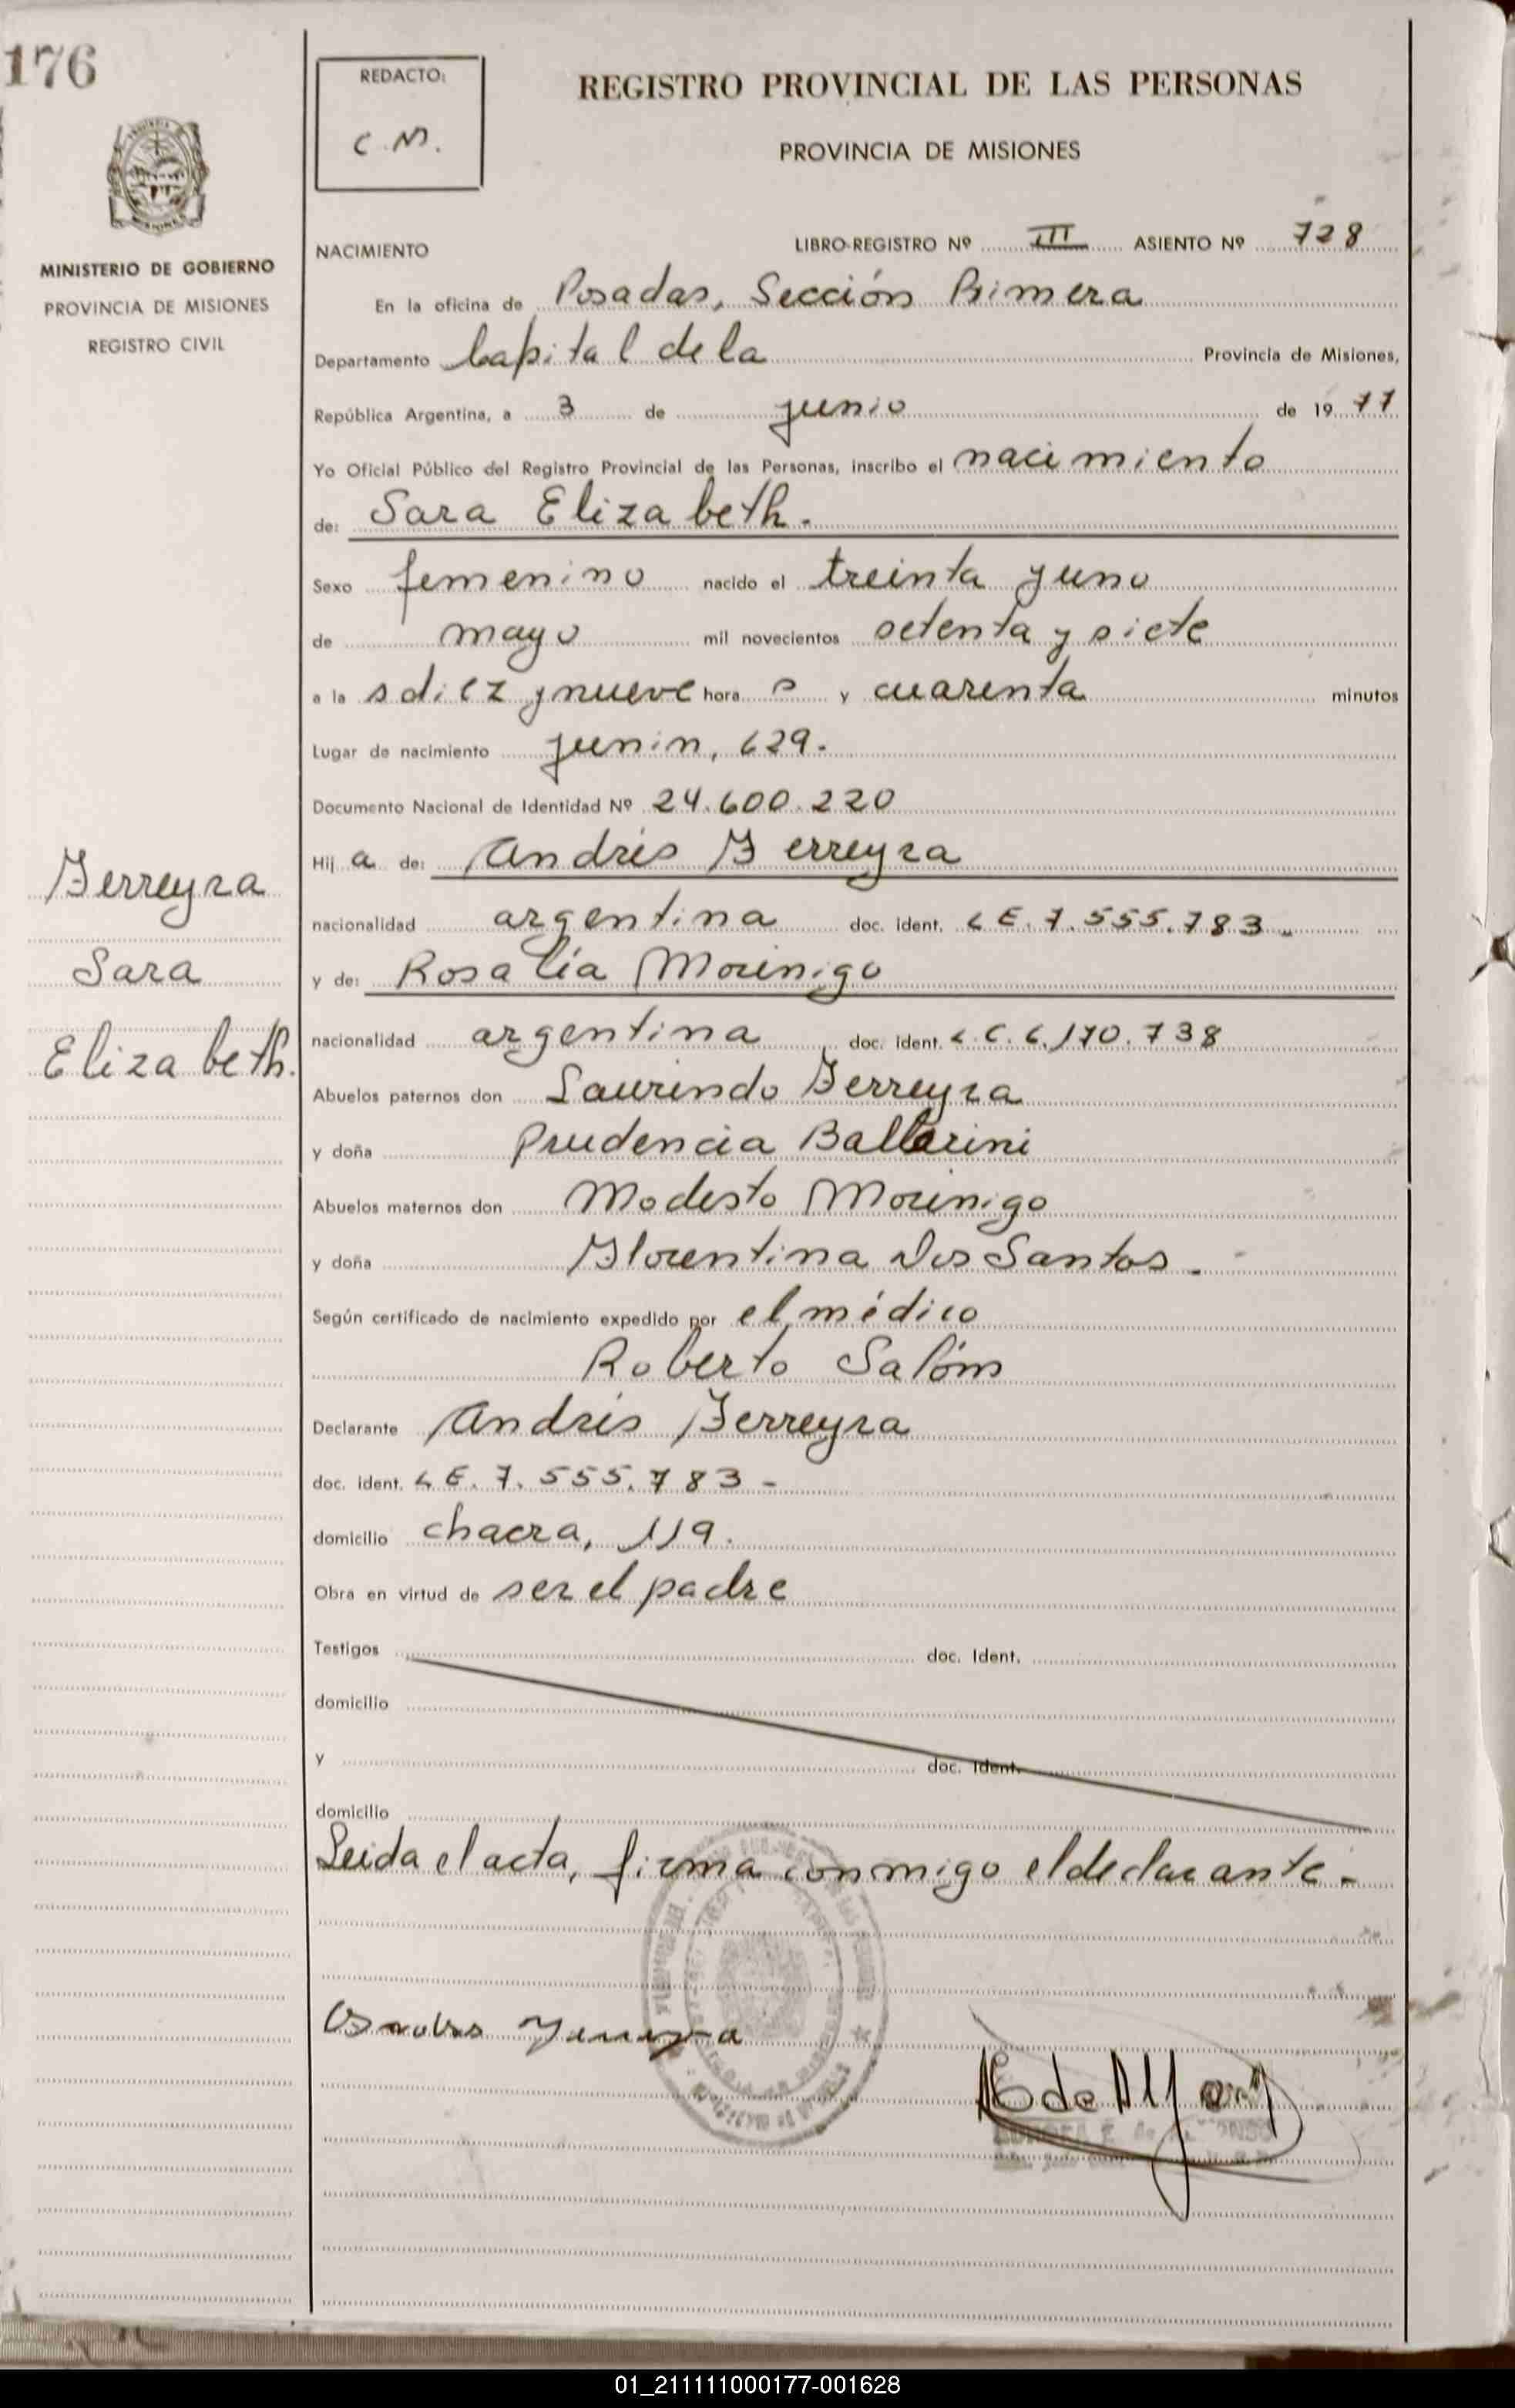 176
REDACTO:
C.M.
REGISTRO PROVINCIAL DE LAS PERSONAS
PROVINCIA DE MISIONES
MINISTERIO DE GOBIERNO
PROVINCIA DE MISIONES
REGISTRO CIVIL
NACIMIENTO LIBRO-REGISTRO Nº III ASIENTO Nº 728
En la oficina de Posadas, Sección Primera
Departamento Capital de la Provincia de Misiones,
República Argentina, a 3 de junio de 1977
Yo Oficial Público del Registro Provincial de las Personas, inscribo el nacimiento
de: Sara Elizabeth.
Sexo femenino nacido el treinta y uno
de mayo mil novecientos setenta y siete
a la s diez y nueve hora s y cuarenta minutos
Lugar de nacimiento Junin, 629.
Documento Nacional de Identidad Nº 24.600.220
Hij a de: Andrés Ferreyra
nacionalidad argentina doc. ident. L E. 7.555.783-
y de: Rosalía Morinigo
nacionalidad argentina doc. ident. L.C. 6.170.738
Abuelos paternos don Laurindo Ferreyra
y doña Prudencia Ballarini
Abuelos maternos don Modesto Morinigo
y doña Florentina Dos Santos-
Según certificado de nacimiento expedido por el médico
Roberto Salóm
Declarante Andrés Ferreyra
doc. ident. L E. 7.555.783-
domicilio chacra, 119.
Obra en virtud de ser el padre
Testigos doc. Ident.
domicilio
y doc. Ident.
domicilio
Leida el acta, firma conmigo el declarante-
Ferreyra
Sara
Elizabeth.
01_211111000177-001628